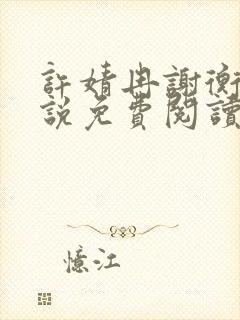 許婧冉謝衡
說免費閱讀
憶江